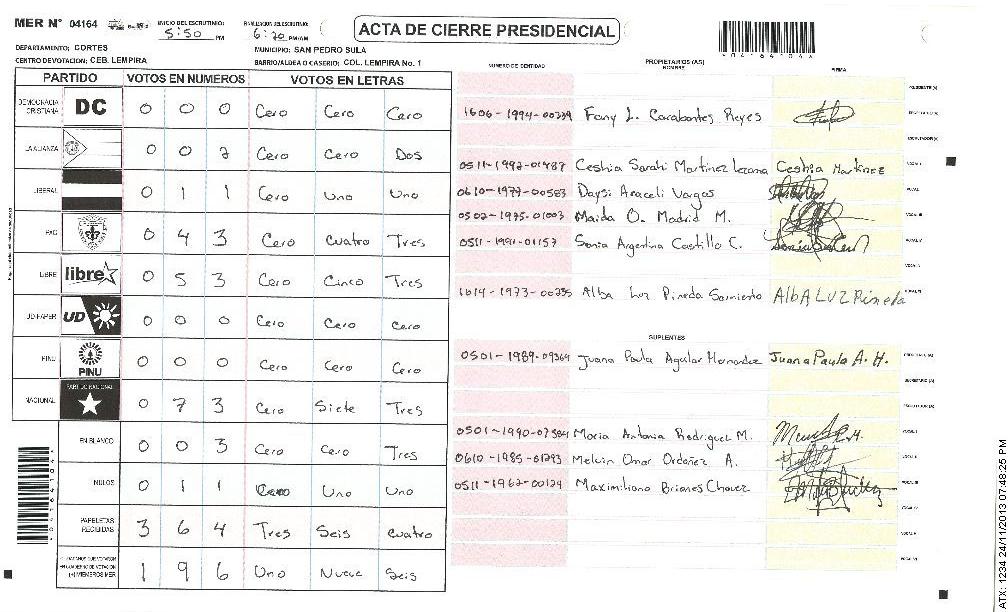 MER N° 04164
INICIO DEL ESCRUTINIO:
5:50 PM
FINALIZACION DEL ESCRUTINIO:
6:20 PM/AM
ACTA DE CIERRE PRESIDENCIAL
DEPARTAMENTO: CORTES
MUNICIPIO: SAN PEDRO SULA
CENTRO DE VOTACION: CEB. LEMPIRA
BARRIO/ALDEA O CASERIO: COL. LEMPIRA No. 1
PARTIDO VOTOS EN NUMEROS VOTOS EN LETRAS
DEMOCRACIA CRISTIANA DC 0 0 0 Cero Cero Cero
LA ALIANZA 0 0 2 Cero Cero Dos
LIBERAL 0 1 1 Cero Uno Uno
PAC 0 4 3 Cero Cuatro Tres
LIBRE libre 0 5 3 Cero Cinco Tres
UD FAPER UD 0 0 0 Cero Cero Cero
PINU PINU 0 0 0 Cero Cero Cero
NACIONAL PARTIDO NACIONAL 0 7 3 Cero Siete Tres
EN BLANCO 0 0 3 Cero Cero Tres
NULOS 0 1 1 Cero Uno Uno
PAPELETAS RECIBIDAS 3 6 4 Tres Seis Cuatro
CIUDADANOS QUE VOTARON EN CUADERNO DE VOTACION (+) MIEMBROS MER 1 9 6 Uno Nueve Seis
NUMERO DE IDENTIDAD PROPIETARIOS (AS) NOMBRE FIRMA
1606-1994-00339 Fany L. Carabantes Reyes
0511-1992-01487 Ceshia Sarahi Martinez Ceshia Martinez
0610-1977-00583 Daysi Araceli Vargas
0502-1975-01003 Maida O. Madrid M.
0511-1991-01157 Sonia Argentina Castillo C.
1614-1973-00235 Alba Luz Pineda Sarmiento AlbA LUZ Pineda
SUPLENTES
0501-1989-09369 Juana Paula Aguilar Hernandez Juana Paula A. H.
0501-1990-07384 Maria Antonia Rodriguez M.
0610-1985-01293 Melvin Omar Ordoñez A.
0511-1962-00124 Maximiliano Briones Chavez
ATX: 1234 24/11/2013 07:48:25 PM